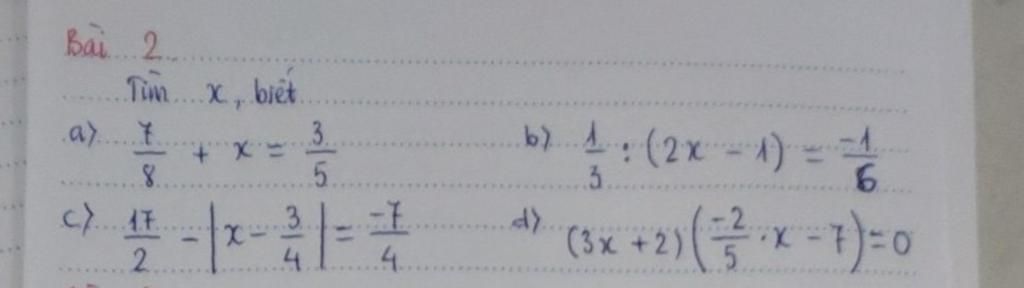 Bài 2
Tìm x, biết
a) 7/8 + x = 3/5 b) 1/3 : (2x - 1) = -1/6
c) 17/2 - |x - 3/4| = -7/4 d) (3x + 2)(-2/5 . x - 7) = 0